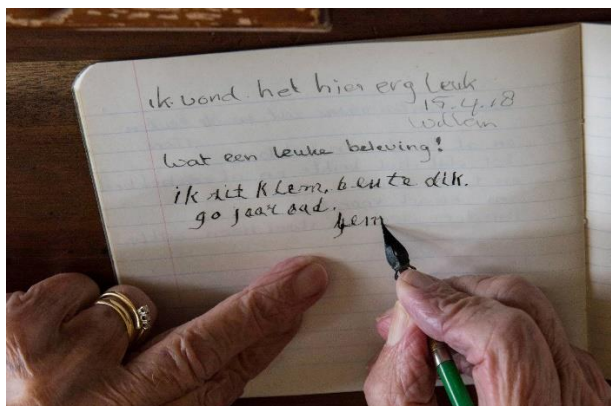 ik vond het hier erg leuk
15.4.18
Willem
Wat een leuke beleving!
ik zit klem, ben te dik.
90 jaar oud.